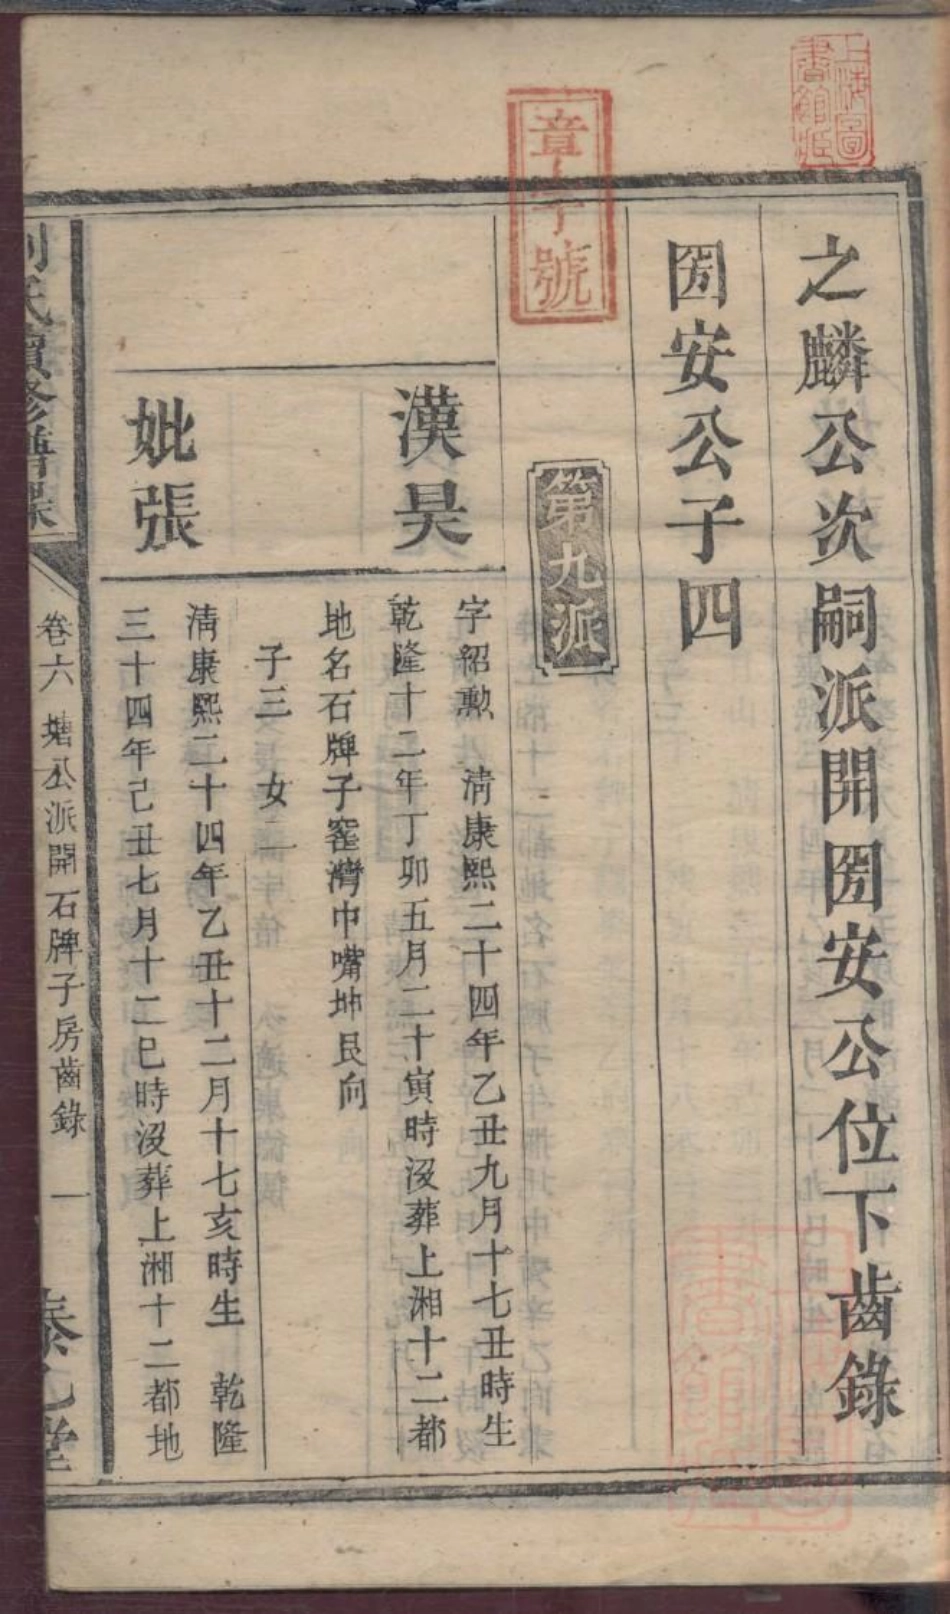 上海圖
書館藏
章字號
之麟公次嗣派開圀安公位下齒錄
圀安公子四
第九派
漢昊
字紹勲 清康熙二十四年乙丑九月十七丑時生
乾隆十二年丁卯五月二十寅時沒葬上湘十二都
地名石牌子窰灣中嘴坤艮向
子三 女二
妣張
清康熙二十四年乙丑十二月十七亥時生 乾隆
三十四年己丑七月十二巳時沒葬上湘十二都地
劉氏續修譜
卷六 塘公派開石牌子房齒錄 一